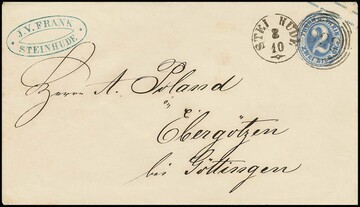 J. V. FRANK
STEINHUDE
STEINHUDE
8
10
2
Herrn A. Poland
in
Ebergötzen
bei Göttingen